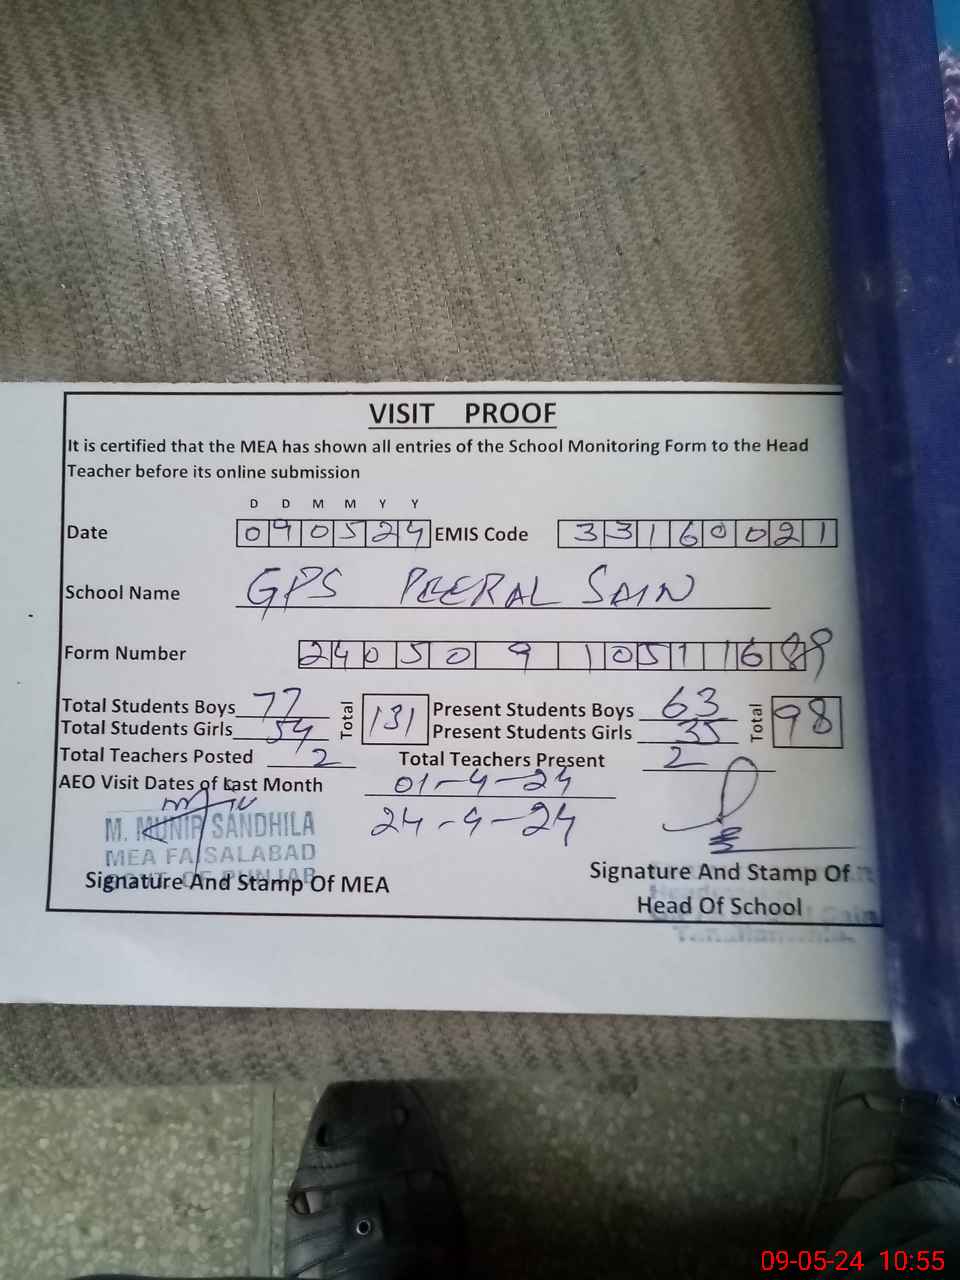 VISIT PROOF
It is certified that the MEA has shown all entries of the School Monitoring Form to the Head
Teacher before its online submission
D D M M Y Y
Date 090524 EMIS Code 33160021
School Name GPS PEERAL SAIN
Form Number
Total Students Boys 77 Total 131 Present Students Boys 63 Total 98
Total Students Girls 54 Present Students Girls 35
Total Teachers Posted 2 Total Teachers Present 2
AEO Visit Dates of Last Month 01-4-24
24-4-24
M. MUNIR SANDHILA
MEA FAISALABAD
GOVT. OF PUNJAB
Signature And Stamp Of MEA
Signature And Stamp Of
Head Of School
09-05-24 10:55